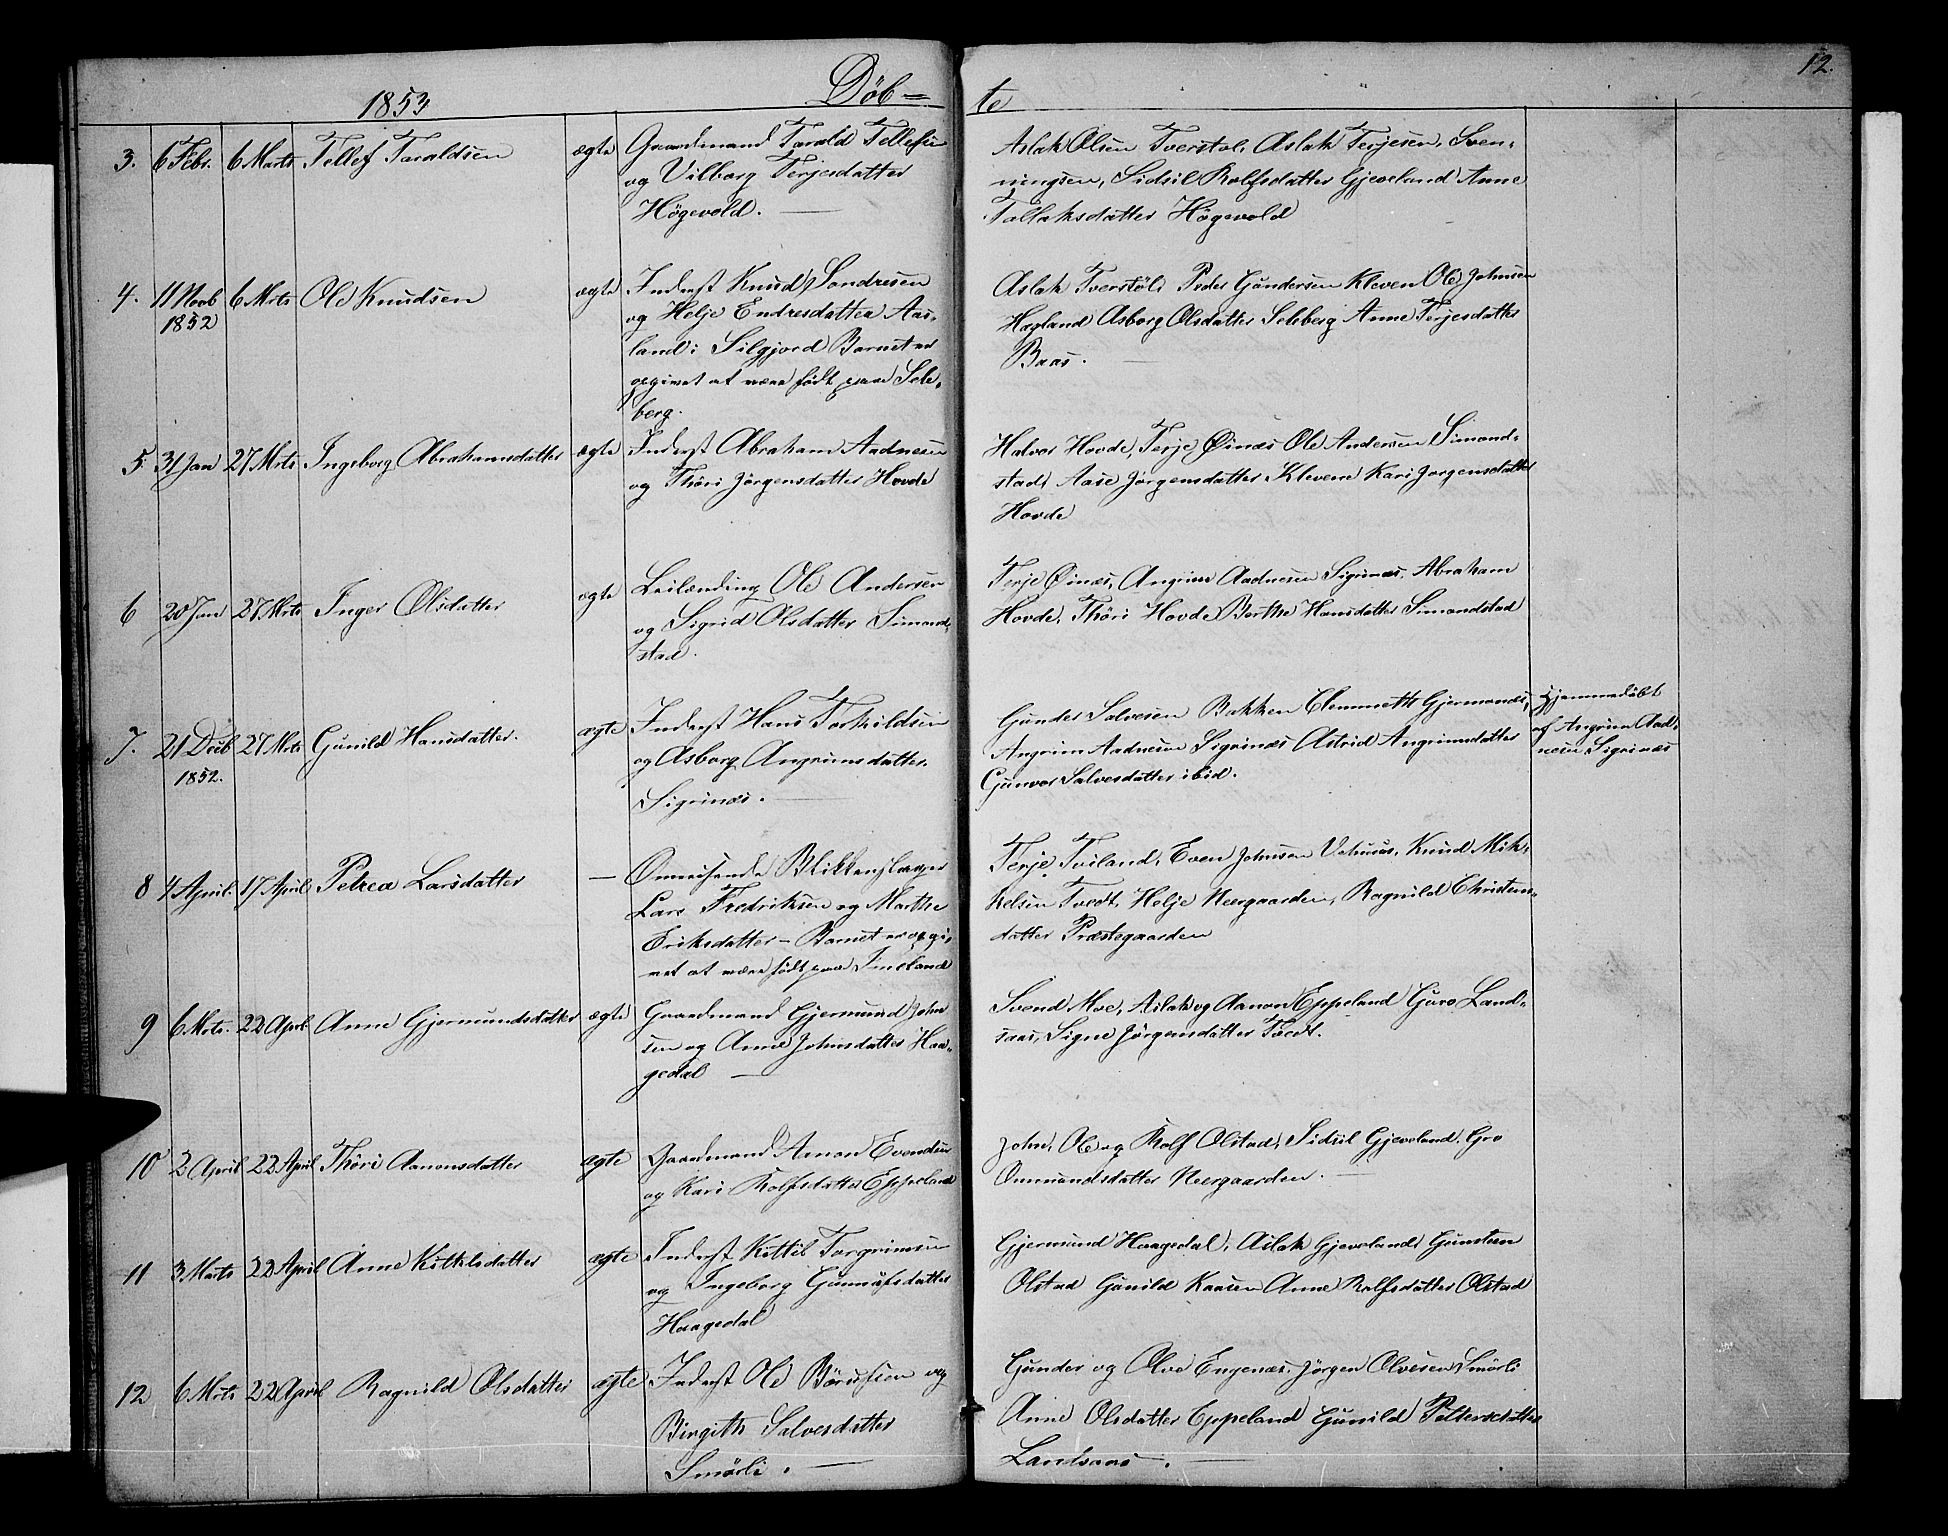 12.
1853 Döb=
te
3. 6 Febr. 6 Marts Tellef Taraldsen ægte Gaardmand Tarald Tellefsen
og Vilborg Terjesdatter
Högevold.
Aslak Olsen Tverstöl, Aslak Terjesen, Sven-
ningsen, Sidsil Rolfsdatter Gjeveland Anne
Tallaksdatter Högevold
4. 11 Novb 6 Mrts Ole Knudsen ægte Inderst Knud Sondresen
1852
og Helje Endresdatter Aas-
land i Silgjord Barnet er
opgivet at være födt paa Sele-
berg.
Aslak Tverstöl, Peder Gundersen Kleven Ole Johnsen
Hagland Asborg Olsdatter Seleberg Anne Terjesdatter
Baas.
5 31 Jan 27 Mrts Ingeborg Abrahamsdatter ægte Inderst Abraham Aadnesen
og Thöri Jörgensdatter Hovde
Halvor Hovde, Terje Øinæs Ole Andersen Simond-
stad, Aase Jörgensdatter Klevene Kari Jörgensdatter
Hovde
6 20 Jan 27 Mrts Inger Olsdatter ægte Leilænding Ole Andersen
og Sigrid Olsdatter Simond-
stad.
Terje Øinæs, Angrim Aadnesen Sigrinæs, Abraham
Hovde, Thöri Hovde, Berthe Hansdatter Simondstad
7. 21 Decb 27 Mrts Gunild Hansdatter. ægte Inderst Hans Torkildsen
1852.
og Asborg Angrimsdatter
Sigrinæs.
Gunder Salvesen Bakken Clemmeth Gjermonæs,
Angrim Aadnesen Sigrinæs Astrid Angrimsdatter
Gunvor Salvesdatter ibid.
Hjemmedöbt
af Angrim Aad-
nesen Sigrinæs
8 4 April 17 April Petrea Larsdatter — Omreisende Blikkenslager
Lars Fredriksen og Marthe
Eriksdatter – Barnet er opgi-
vet at være födt paa Imeland
Terje Tviland, Even Johnsen Vehuus, Knud Mik-
kelsen Tvedt, Helje Neergaarden, Ragnild Christens-
datter Præstegaarden
9 6 Mrts. 22 April Anne Gjermundsdatter ægte Gaardmand Gjermund John
sen og Anne Johnsdatter Haa-
gedal
Svend Moe, Aslak og Aanon Eppeland Guro Land-
saas, Signe Jörgensdatter Tvedt.
10 2 April 22 April Thöri Aanonsdatter ægte Gaardmand Aanon Evendsen
og Kari Rolfsdatter Eppeland
John, Ole og Rolf Olstad, Sidsil Gjeveland, Gro
Ommundsdatter Neergaarden.
11 3 Marts 22 April Anne Kittilsdatter ægte Inderst Kittil Torgrimsen
og Ingeborg Gunnufsdatter
Haagedal
Gjermund Haagedal, Aslak Gjeveland, Gunsten
Olstad Gunild Kaasen Anne Rolfsdatter Olstad
12 6 Mrts 22 April Ragnild Olsdatter ægte Inderst Ole Börufsen og
Birgith Salvesdatter
Smörli.
Gunder og Olve Engenæs, Jörgen Olvesen Smörli
Anne Olsdatter Eppeland Gunild Pettersdatter
Landsaas.